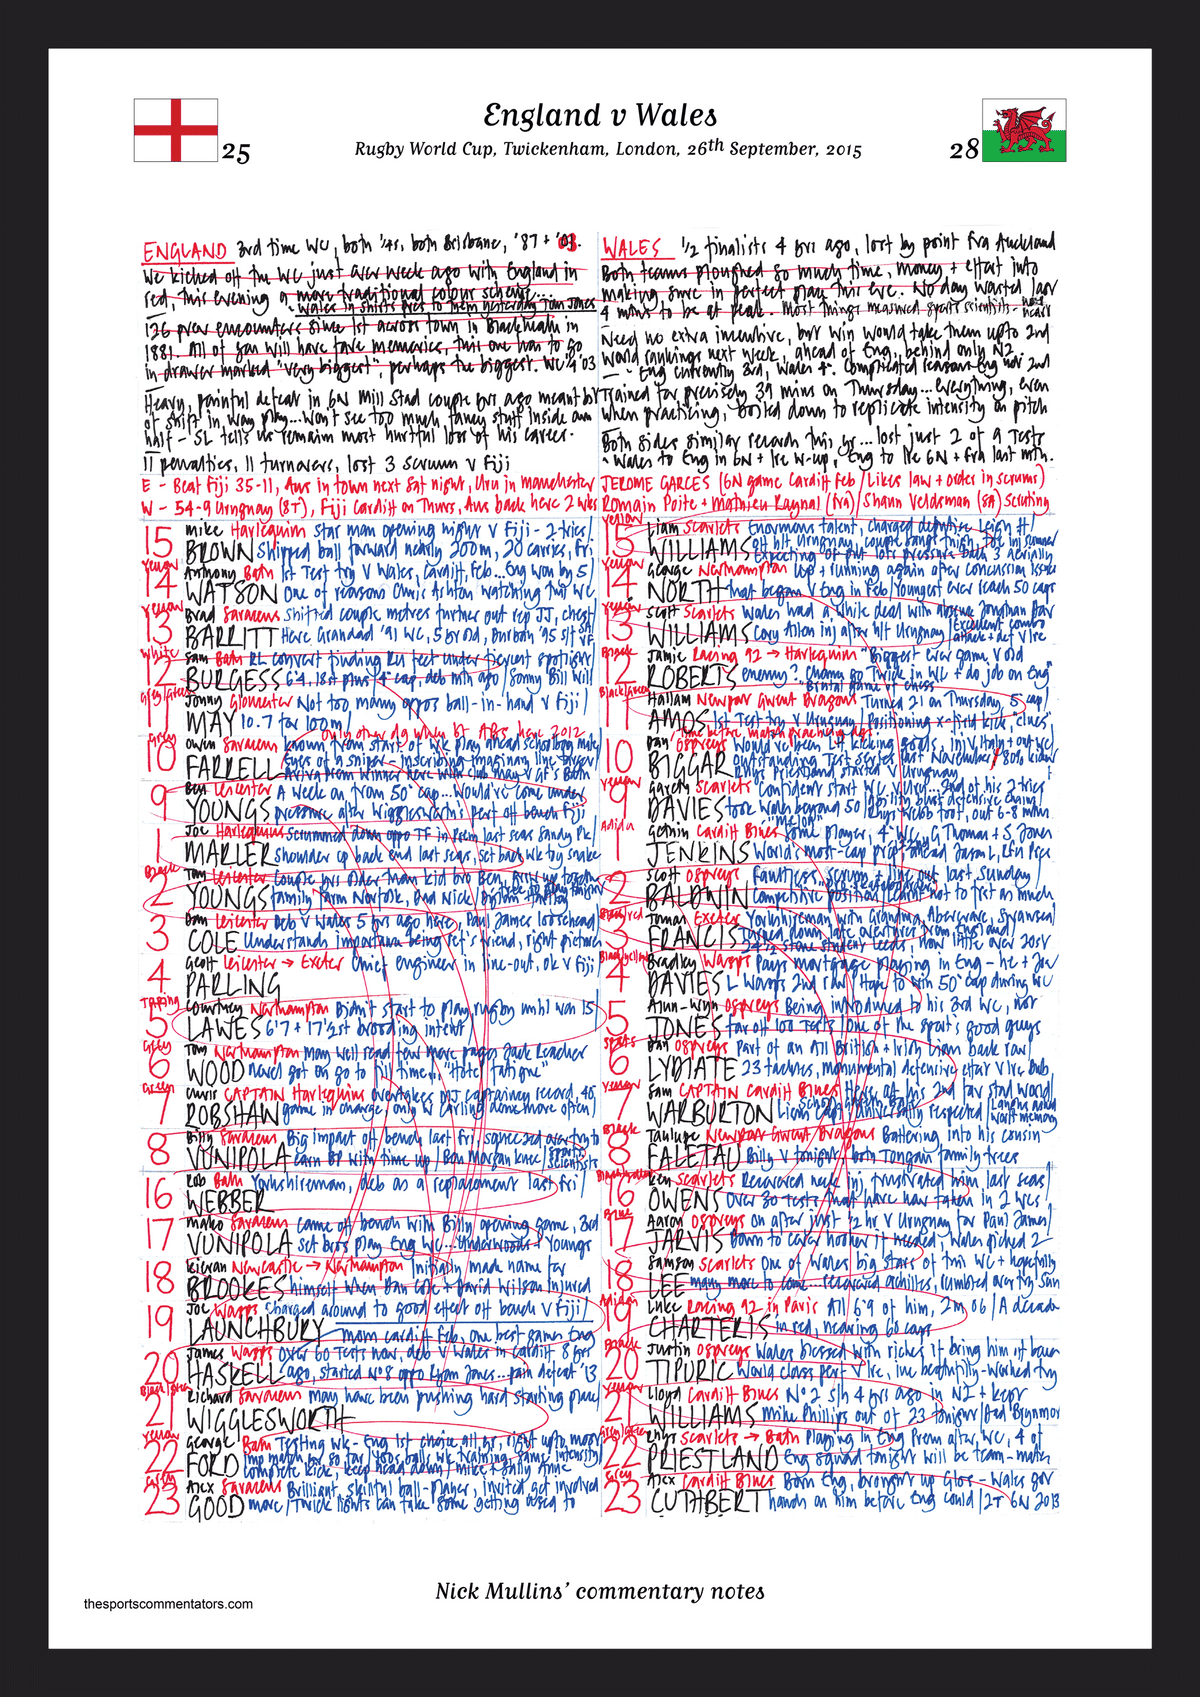 England v Wales
25
Rugby World Cup, Twickenham, London, 26th September, 2015
28
ENGLAND 3rd time WC, both 1/4s, both Brisbane, '87 + '03.
We kicked off the WC just over week ago with England in
red, this evening a more traditional colour scheme...
Wales in shirts given to them yesterday Tom Jones
126 prev encounters since 1st across town in Blackheath in
1881. All of you will have fave memories, this one has to go
in drawer marked "very biggest", perhaps the biggest. WC 1/4 '03
Heavy, painful defeat in 6N Mill Stad couple yrs ago meant bit
of shift in way play...Won't see too much fancy stuff inside own
half - SL tells us remains most hurtful loss of his career.
11 penalties, 11 turnovers, lost 3 scrum v Fiji
E - Beat Fiji 35-11, Aus in town next Sat night, Uru in Manchester
W - 54-9 Uruguay (8T), Fiji Cardiff on Thurs, Aus back here 2 wks
WALES 1/2 finalists 4 yrs ago, lost by point Fra Auckland
Both teams ploughed so much time, money + effort into
making sure in perfect place this eve. No day wasted last
4 mths to be at peak. Most things measured sports scientists - not heart
Need no extra incentive, but win would take them up to 2nd
world rankings next week, ahead of Eng, behind only NZ
- Eng currently 3rd, Wales 4th. Complicated reasons Eng not 2nd
Trained for precisely 39 mins on Thursday...everything, even
when practising, boiled down to replicate intensity on pitch
Both sides similar records this yr...lost just 2 of 9 Tests
- Wales to Eng in 6N + Ire W-up, Eng to Ire 6N + Fra last mth.
JEROME GARCES (6N game Cardiff Feb / Likes law + order in scrums)
Romain Poite + Mathieu Raynal (Fra) / Shaun Veldsman (SA) Scuting
15 Mike Harlequin Star man opening night v Fiji - 2 tries /
BROWN Shipped ball forward nearly 200m, 20 carries, Fri
yellow
14 Anthony Bath 1st Test try v Wales, Cardiff, Feb...Eng won by 5 /
WATSON One of reasons Chris Ashton watching this WC
yellow
13 Brad Saracens Shifted couple metres further out rep JJ, chest /
BARRITT Here Grandad '91 WC, 5 yr old, Durban '95 s/f SA v F
White
12 Sam Bath RL convert finding RU feet under fiercest spotlight /
BURGESS 6'4, 18st plus / 4th cap, deb mth ago / Sonny Bill Will
Grey/Green
11 Jonny Gloucester Not too many opps ball-in-hand v Fiji /
MAY 10.7 for 100m /
Only other dg when bt ABs here 2012
Grey
10 Owen Saracens known from start of wk play ahead schoolboy mate /
FARRELL Eyes of a sniper - inscribing imaginary line
9 Ben Leicester A week on from 50th cap...Would've come under
YOUNGS pressure after Wigglesworth's part off bench Fiji
1 Joe Harlequins Scrummed down oppo TF in Prem last seas Sandy Pk /
MARLER Shoulder op back end last seas, set back wk by snake
Black
2 Tom Leicester Couple yrs older than kid bro Ben,
YOUNGS family farm Norfolk, Dad Nick,
3 Dan Leicester Deb v Wales 5 yrs ago here, Paul James loosehead
COLE Understands importance being ref's friend, right picture
4 Geoff Leicester → Exeter Chief engineer in line-out, ok v Fiji /
PARLING
5 Courtney Northampton Didn't start to play rugby until won 15
LAWES 6'7 + 17 1/2st brooding intent
Grey
6 Tom Northampton Man well read few more pages Jack Reacher
WOOD novel got on go to fill time, "Hotel fatigue"
Green
7 Chris CAPTAIN Harlequins overtakes MJ captaincy record, 40
ROBSHAW game in charge, only W Carling done more often /
8 Billy Saracens Big impact off bench last Fri, squeezed over try to
VUNIPOLA earn BP with time up / Ben Morgan knee / sports scientists
16 Rob Bath Yorkshireman, deb as a replacement last Fri /
WEBBER
17 Mako Saracens Came off bench with Billy opening game, 3rd
VUNIPOLA set bros play Eng WC...Underwoods + Youngs
18 Kieran Newcastle → Northampton Initially made name for
BROOKES himself when Dan Cole + David Wilson injured
19 Joe Wasps Charged around to good effect off bench v Fiji /
LAUNCHBURY mom Cardiff Feb, one best games Eng
20 James Wasps Over 60 Tests now, deb v Wales in Cardiff 8 yrs
HASKELL ago, started No 8 oppo Ryan Jones...pain defeat '13
Black/Green
21 Richard Saracens May have been pushing hard starting place /
WIGGLESWORTH
yellow
22 George Bath Testing wk - Eng 1st choice all yr, right up to most
FORD imp match yr so far / 400s balls wk training, same intensity /
complete kick, keep head down / Mike + Sally Anne
Grey
23 Alex Saracens Brilliant, skilful ball-player, invited get involved
GOOD more / Twick lights can take some getting used to
yellow
15 Liam Scarlets Enormous talent, charged definitive Leigh H /
WILLIAMS off h/t Uruguay, couple bangs thigh, toe inj summer
Expecting to put lots pressure aerially
14 George Northampton Up + running again after concussion issue
NORTH that began v Eng in Feb / Youngest ever reach 50 caps
yellow
13 Scott Scarlets Wales had a while deal with absence Jonathan Dav
WILLIAMS Cory Allen inj after h/t Uruguay / Excellent combo attack + def v Ire
Black
12 Jamie Racing 92 → Harlequin "Biggest ever game v old
ROBERTS enemy? Chance go Twick in WC + do job on Eng"
Brutal game of chess
Black/Green
11 Hallam Newport Gwent Dragons Turned 21 on Thursday, 5 cap /
AMOS 1st Test try v Uruguay / Positioning x-field kick "clues"
time before match practising dgs
10 Dan Ospreys Would've been LH kicking goals, inj v Italy + out WC /
BIGGAR Outstanding Test series last November /
Rhys Priestland started v Uruguay
yellow
9 Gareth Scarlets Confident start WC v Uru...2nd of his 2 tries
DAVIES took Wales beyond 50 / Ability blast defensive chain /
Rhys Webb foot, out 6-8 mths
Adidas
1 Gethin Cardiff Blues "Melon" Some player, 4th WC, G Thomas + S Jones
JENKINS World's most-cap prop, ahead Jason L,
2 Scott Ospreys Faultless scrum + line out last Sunday /
BALDWIN Competitive position,
Black/red
3 Tomas Exeter Yorkshireman with Grandma, Abercrave, Swansea /
FRANCIS Turned down late overtures from England /
24 1/2 stone student Leeds, now little over 20st
Black/yellow
4 Bradley Wasps Pays mortgage playing in Eng - he + Jav
DAVIES L Wasps 2nd row / Hope to win 50th cap during WC
5 Alun-Wyn Ospreys Being introduced to his 3rd WC, not
JONES far off 100 Tests / One of the sport's good guys
6 Dan Ospreys Part of an All British + Irish Lions back row /
LYDIATE 23 tackles, monumental defensive effort v Ire Dub
yellow
7 Sam CAPTAIN Cardiff Blues Here, at his 2nd far stad world /
WARBURTON Lions capt / Universally respected /
Black
8 Taulupe Newport Gwent Dragons Battering, into his cousin
FALETAU Billy V tonight / both Tongan family trees
16 Ken Scarlets Recovered neck inj, frustrated him last seas /
OWENS Over 30 Tests that have now taken in 2 WCs
Blue
17 Aaron Ospreys On after just 1/2 hr v Uruguay for Paul James /
JARVIS Down to cover hooker if needed, Wales picked 2
18 Samson Scarlets One of Wales big stars of this WC + hopefully
LEE many more to come...recovered achilles, rumbled over try Sun
Adidas
19 Luke Racing 92 in Paris All 6'9 of him, 2m 06 / A decade
CHARTERIS in red, nearing 60 caps
Black
20 Justin Ospreys Wales blessed with riches if bring him off bench
TIPURIC World class part v Ire, Ire beautifully-worked try
yellow
21 Lloyd Cardiff Blues No 2 s/h 4 yrs ago in NZ + kept
WILLIAMS Mike Phillips out of 23 tonight / Dad Brynmor
Grey/Green
22 Rhys Scarlets → Bath Playing in Eng Prem after WC, 4 of
PRIESTLAND Eng squad tonight will be team-mates
Grey
23 Alex Cardiff Blues Born Eng, brought up Glos - Wales got
CUTHBERT hands on him before Eng could / 2T 6N 2013
Nick Mullins' commentary notes
thesportscommentators.com